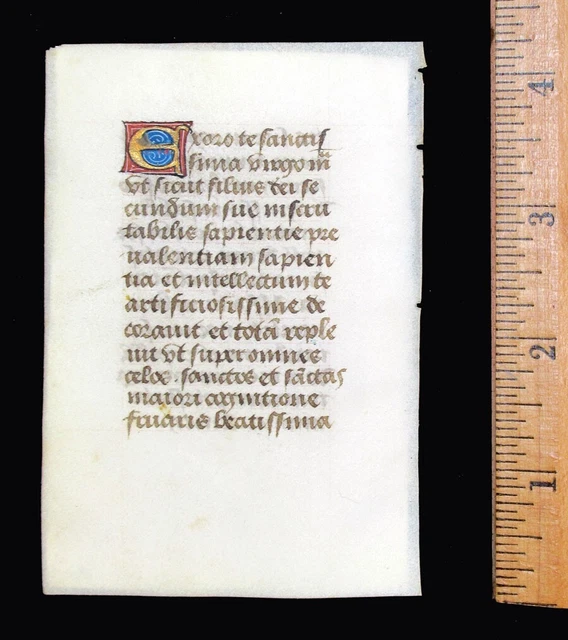 Exoro te sanctis
sima virgo m̄
vt sicut filius dei se
cundum sue inscru
tabilis sapientie pre
ualentiam sapien
tia et intellectum te
artificiosissime de
corauit et totā reple
uit vt super omnes
celos. sanctos et sāctas
maiori cognitione
fruaris beatissima
4
3
2
1